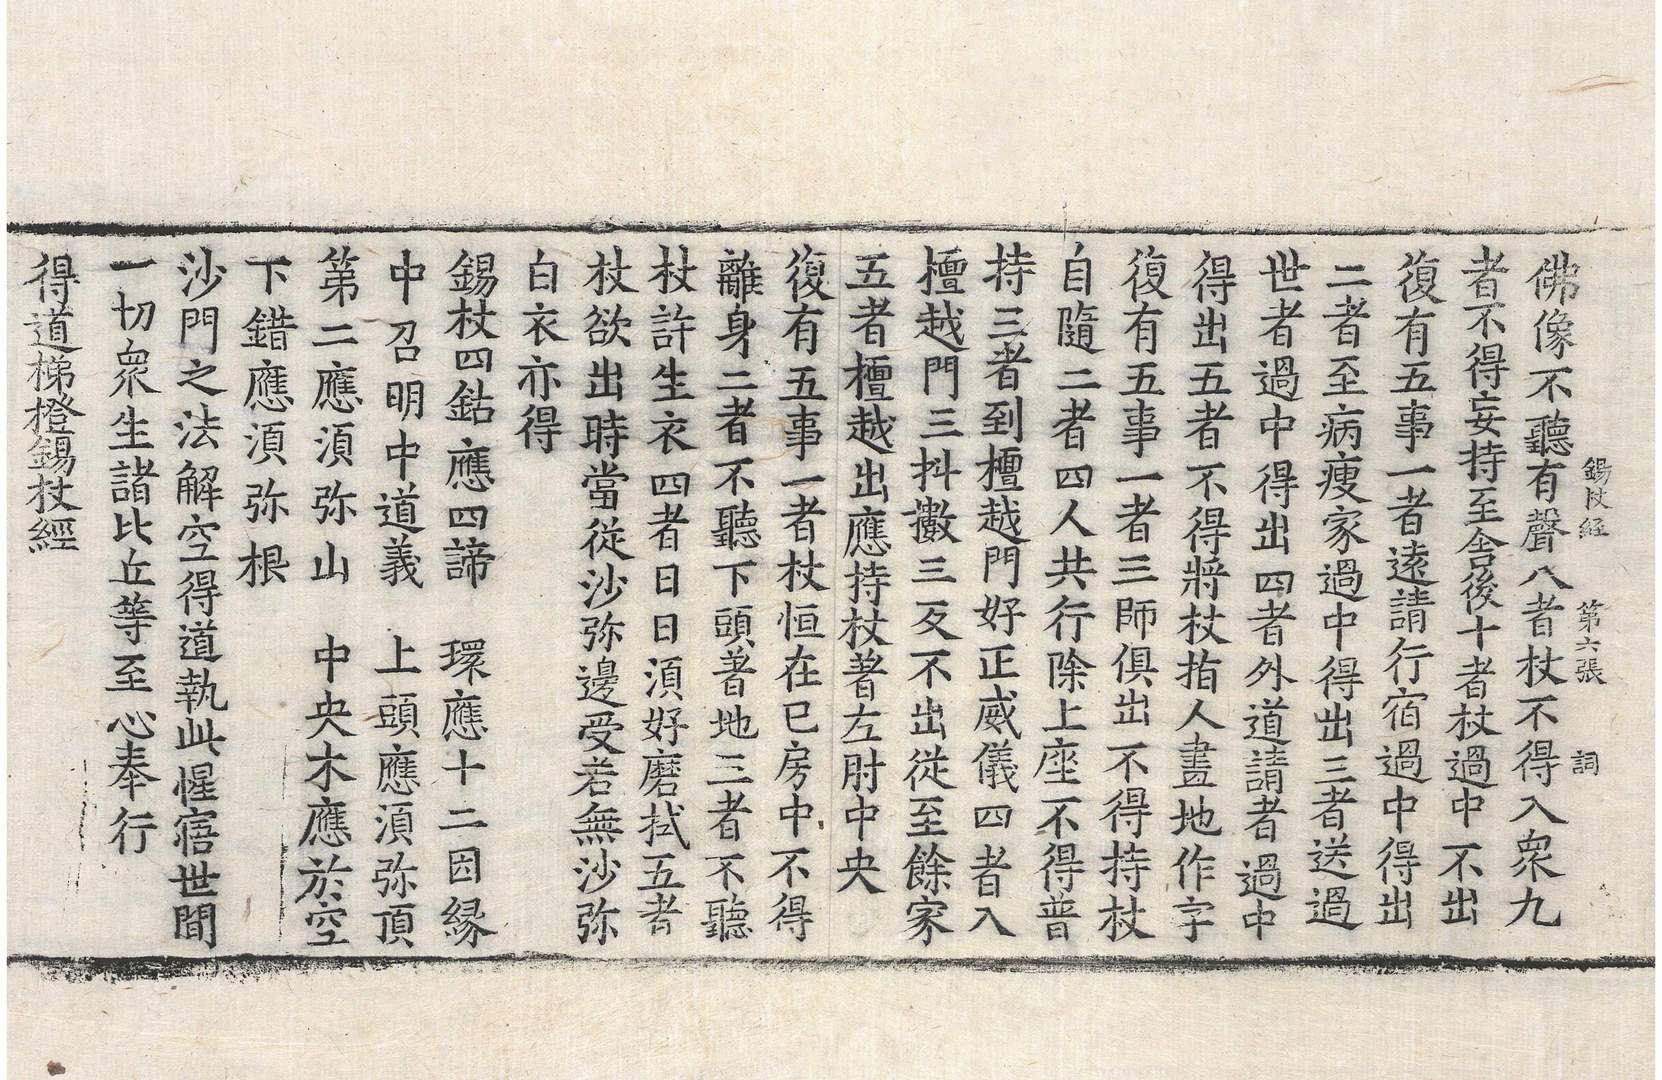 錫杖経 第六張 詞
佛像不聽有聲八者杖不得入眾九
者不得妄持至舍後十者杖過中不出
復有五事一者遠請行宿過中得出
二者至病瘦家過中得出三者送過
世者過中得出四者外道請者過中
得出五者不得將杖指人畫地作字
復有五事一者三師俱出不得持杖
自隨二者四人共行除上座不得普
持三者到檀越門好正威儀四者入
檀越門三抖擻三反不出從至餘家
五者檀越出應持杖著左肘中央
復有五事一者杖恒在己房中不得
離身二者不聽下頭著地三者不聽
杖許生衣四者日日須好磨拭五者
杖欲出時當從沙弥邊受若無沙弥
白衣亦得
錫杖四鈷應四諦 環應十二因縁
中召明中道義 上頭應須弥頂
第二應須弥山 中央木應於空
下錯應須弥根
沙門之法解空得道執此惺寤世間
一切眾生諸比丘等至心奉行
得道梯橙錫杖經